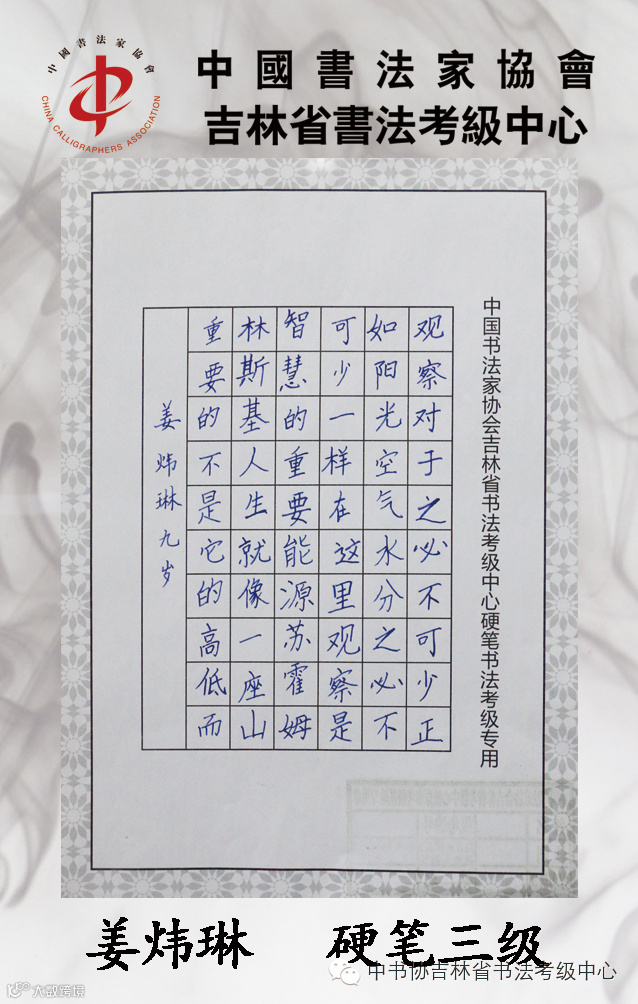 中國書法家協會
CHINA CALLIGRAPHERS ASSOCIATION
中國書法家協會
吉林省書法考級中心
中国书法家协会吉林省书法考级中心硬笔书法考级专用
观察对于之必不可少正
如阳光空气水分之必不
可少一样在这里观察是
智慧的重要能源苏霍姆
林斯基人生就像一座山
重要的不是它的高低而
姜炜琳九岁
姜炜琳 硬笔三级
中书协吉林省书法考级中心
大数跨境